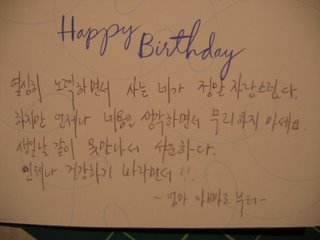 Happy
Birthday
열심히 노력하면서 사는 네가 정말 자랑스럽다.
하지만 언제나 내몸은 생각하면서 무리하지 마세요.
생일날 같이 못만나서 서운하다.
언제나 건강하기 바라면서 !!
- 엄마 아빠로 부터 -